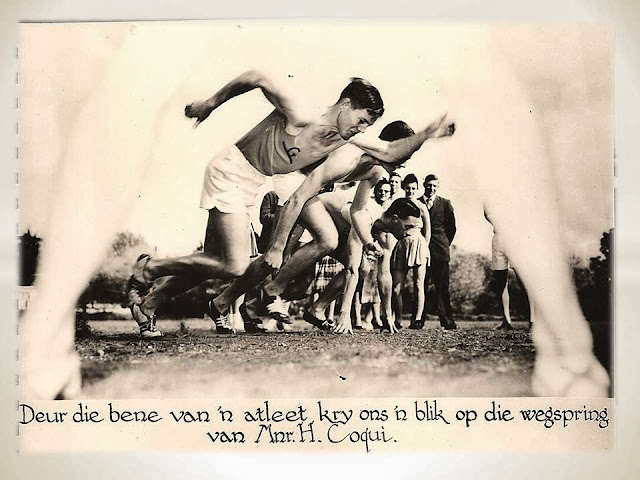 Deur die bene van 'n atleet kry ons 'n blik op die wegspring
van Mnr. H. Coqui.